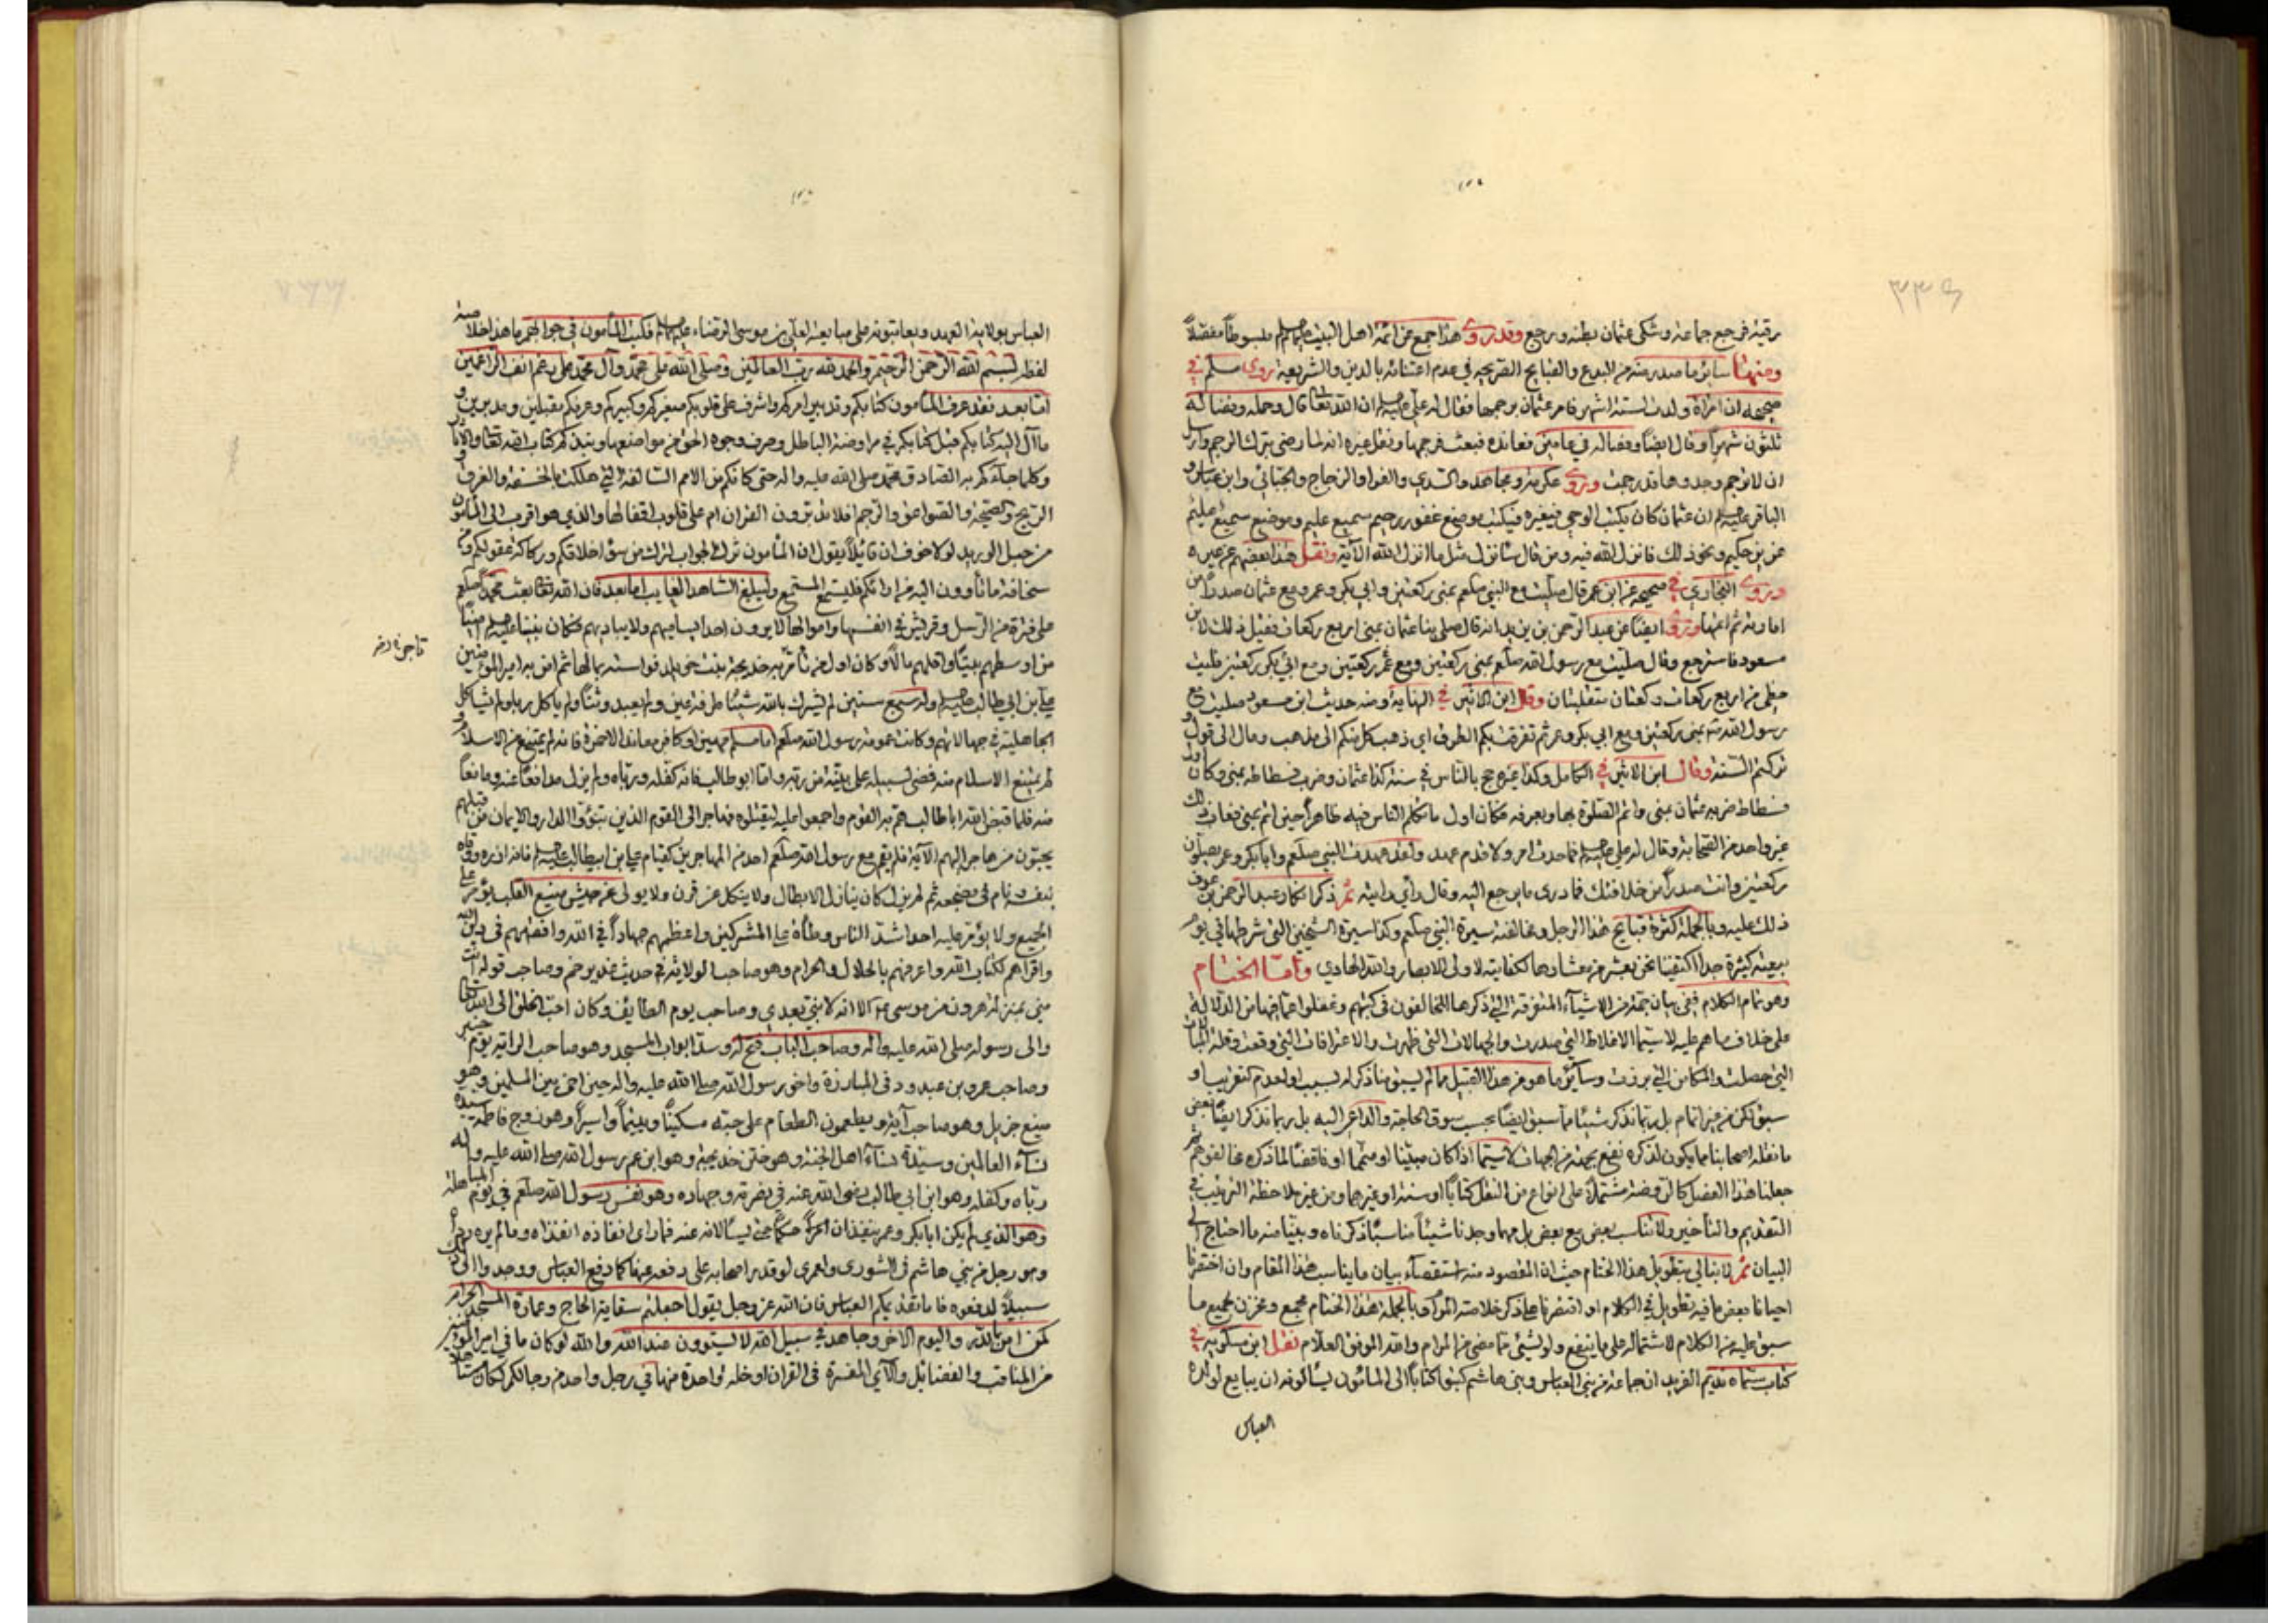 رقية فرجع جماعة وشكى عثمان بطنه ورجع وقد روى هذا جمع عن ائمة اهل البيت عليهم السلم مبسوطاً مفصلاً
ومنها سائر ما صدر منه من البدع والقبايح الصريحة في عدم اعتنائه بالدين والشريعة روى مسلم في
صحيحه ان امراة ولدت لستة اشهر فامر عثمان برجمها فقال له علي عليه السلم ان الله تعالى قال وحمله وفصاله
ثلثون شهراً وقال ايضاً وفصاله في عامين فعانده فبعث فرجمها ونقل غيره انه لما رضى بترك الرجم وارسل
ان لا ترجم وجدوها قد رجمت وروى عكرمة ومجاهد والسدي والفرا والزجاج والجبائي وابن عباس و
الباقر عليه السلم ان عثمان كان يكتب الوحي فيغيره فيكتب موضع غفور رحيم سميع عليم وموضع سميع عليم
عزيز حكيم ونحو ذلك فانزل الله فيه ومن قال سانزل مثل ما انزل الله الآية ونقل هذا بعضهم عن غيره
وروى البخاري في صحيحه عن ابن عمر قال صليت مع النبي صلعم بمنى ركعتين وابي بكر وعمر ومع عثمان صدراً من
امارته ثم اتمها وروى ايضاً عن عبد الرحمن بن يزيد انه قال صلى بنا عثمان بمنى اربع ركعات فقيل ذلك لابن
مسعود فاسترجع وقال صليت مع رسول الله صلعم بمنى ركعتين ومع عمر ركعتين ومع ابي بكر ركعتين فليت
حظى من اربع ركعات ركعتان متقبلتان وقال ابن الاثير في النهاية ومنه حديث ابن مسعود صليت مع
رسول الله ص بمنى ركعتين ومع ابي بكر وعمر ثم تفرقت بكم الطرق اي ذهب كل منكم الى مذهب ومال الى قول و
تركتم السنة وقال ابن الاثير في الكامل وكذا غيره حج بالناس في سنة كذا عثمان وضرب فسطاطه بمنى وكان اول
فسطاط ضربه عثمان بمنى واتم الصلوة بها وبعرفة فكان اول ما تكلم الناس فيه ظاهراً حين اتم بمنى فعاب ذلك
غير واحد من الصحابة وقال له علي عليه السلم ما حدث امر ولا قدم عهد ولقد عهدت النبي صلعم وابا بكر وعمر يصلون
ركعتين وانت صدراً من خلافتك فما درى ما يرجع اليه وقال رأي رأيته ثم ذكر انكار عبد الرحمن بن عوف
ذلك عليه وبالجملة كثرة قبايح هذا الرجل ومخالفته سيرة النبي صلعم وكذا سيرة الشيخين التي شرطها في يوم
بيعته كثيرة جداً اكتفينا نحن بعشر من معشارها لكفايته لاولى الابصار والله الهادي وامّا الختام
وهو تمام الكلام ففي بيان جملة من الاشياء المتفرقة التي ذكرها المخالفون في كتبهم وغفلوا عما فيها من الدلالة
على خلاف ما هم عليه لا سيما الاغلاط التي صدرت والجهالات التي ظهرت والاعترافات التي وقعت
التي حصلت والمكامن التي برزت وسائر ما هو من هذا القبيل مما لم يسبق منا ذكر له بسبب او لعدم تقريب او
سبق لكن من غير اتمام بل ربما نذكر شيئاً مما سبق ايضاً بحسب سوق الحاجة والداعي اليه بل ربما نذكر ايضاً بعض
ما نقله اصحابنا مما يكون لذكره نفع بجهة من الجهات لا سيما اذا كان مبيناً او متمماً او مناقضاً لما ذكره مخالفوهم
جعلنا هذا الفصل كالروضة مشتملاً على انواع من النقل كتاباً او سنة او غيرهما من غير ملاحظة الترتيب في
التقديم والتأخير ولا تناسب بعض مع بعض بل مهما وجدنا شيئاً مناسباً ذكرناه وبينا منه ما احتاج الى
البيان ثم لا نبالي بتطويل هذا الختام حيث ان المقصود منه استقصاء بيان ما يناسب هذا المقام وان اختصرنا
احياناً بعض ما فيه تطويل في الكلام او اقتصرنا على ذكر خلاصة المراد وبالجملة هذا الختام مجمع ومخزن لجميع ما
سبق عليه من الكلام لاشتماله على ما ينفع ولو لشيئ مما مضى من المرام والله الموفق العلام نقل ابن مسكويه في
كتاب سماه نديم الفريد ان جماعة من بني العباس وبني هاشم كتبوا كتاباً الى المأمون يسألونه ان يبايع لولده
العباس
العباس بولاية العهد ويعاتبونه على مبايعته لعلي بن موسى الرضا عليه السلم فكتب المأمون في جوابهم ما هذا خلاصة
لفظه بسم الله الرحمن الرحيم والحمد لله رب العالمين وصلى الله على محمد وآل محمد على رغم انف الراغمين
اما بعد فقد عرف المأمون كتابكم وتدبير امركم واشرف على قلوب صغيركم وكبيركم وعرفكم مقبلين ومدبرين و
ما آل اليه كتابكم قبل كتابكم في مراوضة الباطل وصرف وجوه الحق عن مواضعها ونبذكم كتاب الله تعالى والآثار
وكلما جاءكم به الصادق محمد صلى الله عليه واله حتى كانكم من الامم السالفة التي هلكت بالخسفة والغرق و
الريح والصيحة والصواعق والرجم افلا تتدبرون القران ام على قلوب اقفالها والذي هو اقرب الى المأمون
من حبل الوريد لولا خوف ان قائلاً يقول ان المأمون ترك الجواب لترك من سوء اخلاقكم وركاكة عقولكم ومن
سخافة ما تأوون اليه من ارائكم فليستمع المستمع وليبلغ الشاهد الغايب اما بعد فان الله تعالى بعث محمداً صلعم
على فترة من الرسل وقريش في انفسها واموالها لا يرون احداً يساميهم ولا يباديهم فكان نبينا عليه السلم اميناً
من اوسطهم بيتاً واقلهم مالاً وكان اول من امن به خديجة بنت خويلد فواسته بمالها ثم امن به امير المؤمنين
تاجره رضه
علي بن ابي طالب عليه السلم وله سبع سنين لم يشرك بالله شيئاً طرفة عين ولم يعبد وثناً ولم ياكل ربا ولم يشاكل
الجاهلية في جهالاتهم وكانت عمومة رسول الله صلعم اما مسلم مهين او كافر معاند الا حمزة فانه لم يمتنع من الاسلام و
لم يمتنع الاسلام منه فمضى لسبيله على بينة من ربه واما ابو طالب فانه كفله ورباه ولم يزل مدافعاً عنه ومانعاً
منه فلما قبض الله ابا طالب هم به القوم واجمعوا عليه ليقتلوه فهاجر الى القوم الذين تبوؤا الدار والايمان من قبلهم
يحبون من هاجر اليهم الآية فلم يقم مع رسول الله صلعم احد من المهاجرين كقيام علي بن ابيطالب عليه السلم فانه ازره ووقاه
بنفسه ونام في مضجعه ثم لم يزل كان ينازل الابطال ولا ينكل عن قرن ولا يولى عن جيش منيع القلب يؤمر على
الجميع ولا يؤمر عليه احد اشد الناس وطأة على المشركين واعظمهم جهاداً في الله وافقههم في دين الله
واقراهم لكتاب الله واعرفهم بالحلال والحرام وهو صاحب الولاية في حديث غدير خم وصاحب قوله انت
مني بمنزلة هرون من موسى الا انه لا نبي بعدي وصاحب يوم الطايف وكان احب الخلق الى الله تعالى
والى رسوله صلى الله عليه واله وصاحب الباب فتح له وسد ابواب المسجد وهو صاحب الراية يوم خيبر
وصاحب عمرو بن عبدود في المبارزة واخو رسول الله صلى الله عليه واله حين اخى بين المسلمين وهو
منيع جزيل وهو صاحب آية ويطعمون الطعام على حبه مسكيناً ويتيماً واسيراً وهو زوج فاطمة سيدة
نساء العالمين وسيدة نساء اهل الجنة وهو ختن خديجة وهو ابن عم رسول الله صلى الله عليه واله
رباه وكفله وهو ابن ابي طالب رضى الله عنه في نصرته وجهاده وهو نفس رسول الله صلعم في يوم المباهلة
وهو الذي لم يكن ابا بكر وعمر ينفذان امراً حتى يسألانه عنه فما رأى انفاذه انفذاه وما لم يره رداه
وهو رجل من بني هاشم في الشورى ولعمري لو قدر اصحابه على دفعه عنها كما دفع العباس ووجدوا الى ذلك
سبيلاً لدفعوه فاما تقديمكم العباس فان الله عز وجل يقول اجعلتم سقاية الحاج وعمارة المسجد الحرام
كمن امن بالله واليوم الاخر وجاهد في سبيل الله لا يستوون عند الله والله لو كان ما في امير المؤمنين
من المناقب والفضائل والآي المفسرة في القران خلة واحدة منها في رجل واحد من رجالكم لكان مستأهلاً